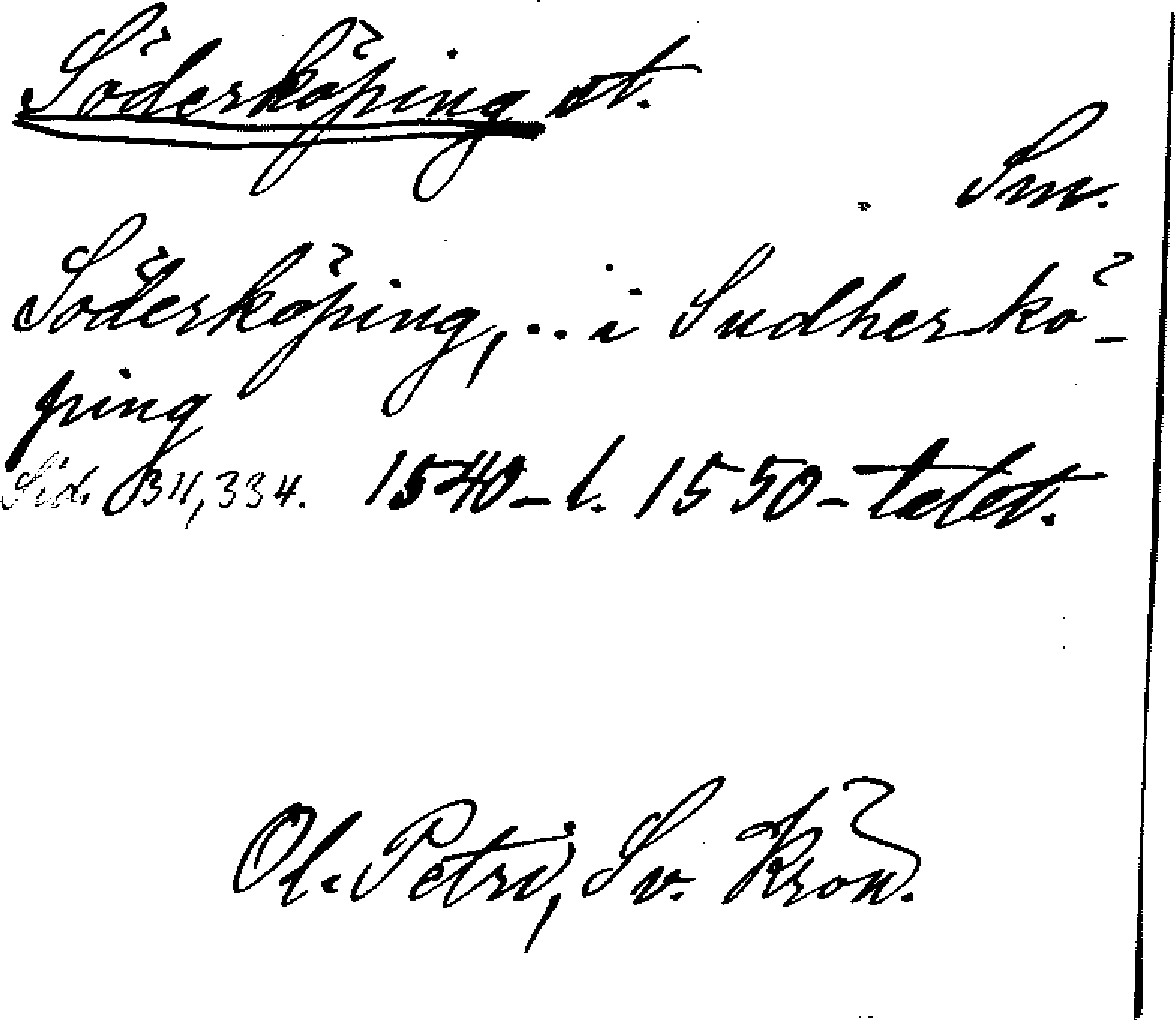 Söderköping st.
Sm.
Söderköping, .. i Sudherkö-
ping
Sid. 34, 334. 1540- l. 1550-talet.
Ol. Petri, Sv. Krön.